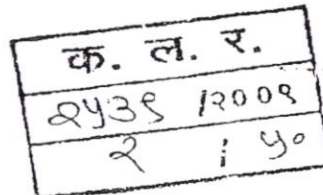 क. ल. र.
२५३९ /२००९
२ / ५०